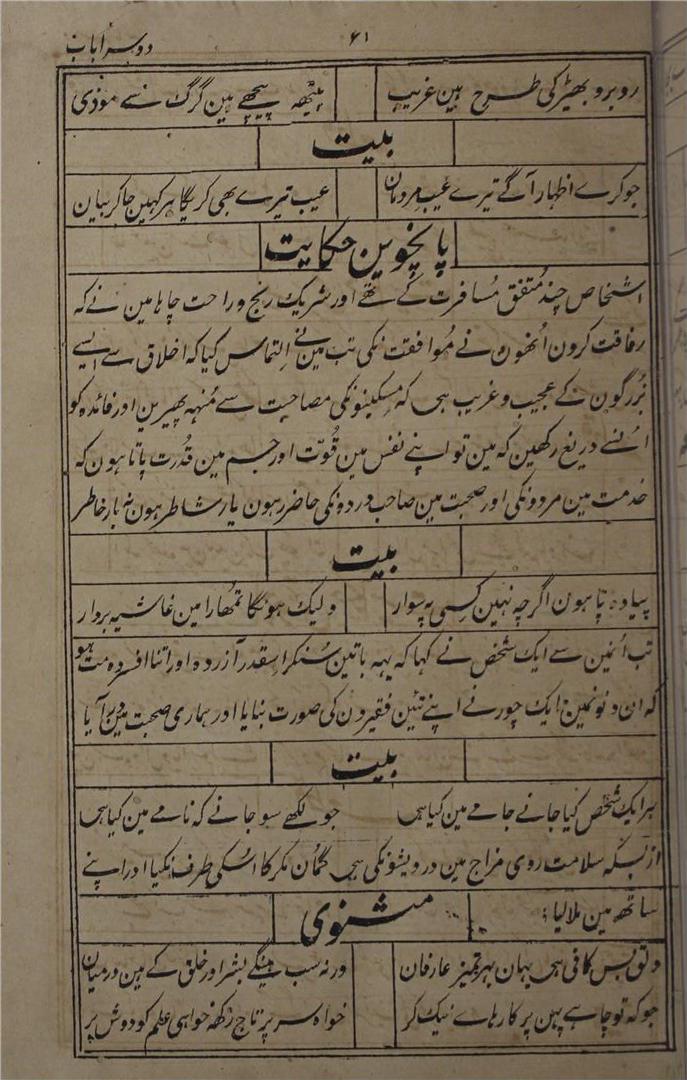 ۶۱
دوسرا باب
روبرو بھیڑ کی طرح ہین غریب پیٹھہ پیچھے ہین گرگ سے موذی
بیت
جو کرے اظہار آگے تیرے عیب مردمان عیب تیرے بھی کریگا ہر کہین جا کر بیان
پانچوین حکایت
اشخاص چند متفق مسافرت کے تھے اور شریک رنج و راحت چاہا مین نے کہ
رفاقت کرون اُنھون نے مُوافقت نکی تب مین نے اِلتماس کیا کہ اخلاق سے ایسے
بُزرگون کے عجیب و غریب ہی کہ مِسکینونکی مصاحبت سے مُنہہ پھیرین اور فائدہ کو
اُنسے دریغ رکھین کہ مین تو اپنے نفس مین قُوّت اور جسم مین قُدرت پاتا ہون کہ
خدمت مین مردونکی اور صحبت مین صاحب دردونکی حاضر رہون یار شاطر ہون نہ بار خاطر
بیت
پیادہ پا ہون اگرچہ نہین کِسی پہ سوار ولیک ہونگا تمُھارا مین غاشیہ بردار
تب اُنمین سے ایک شخص نے کہا کہ یہہ باتین سُنکر اِسقدر آزردہ اور اتنا افسردہ مت ہو
کہ ان دنونمین ایک چور نے اپنے تئین فقیرون کی صورت بنایا اور ہماری صحبت مین در آیا
بیت
ہر ایک شخص کیا جانے جامے مین کیا ہی جو لکھے سو جانے کہ نامے مین کیا ہی
از بسکہ سلامت روی مزاج مین درویشونکی ہی گمُان مکر کا اُسکی طرف نکیا اور اپنے
ساتھہ مین ملا لیا
مثنوی
دلق بس کافی ہی یہان بہر تمیز عارفان ورنہ سب ہینگے بشر اور خلق کے ہین درمیان
جو کہ تو چاہے پہن پر کارہاے نیک کر خواہ سر پر تاج رکھہ خواہی علم کو دوش پر